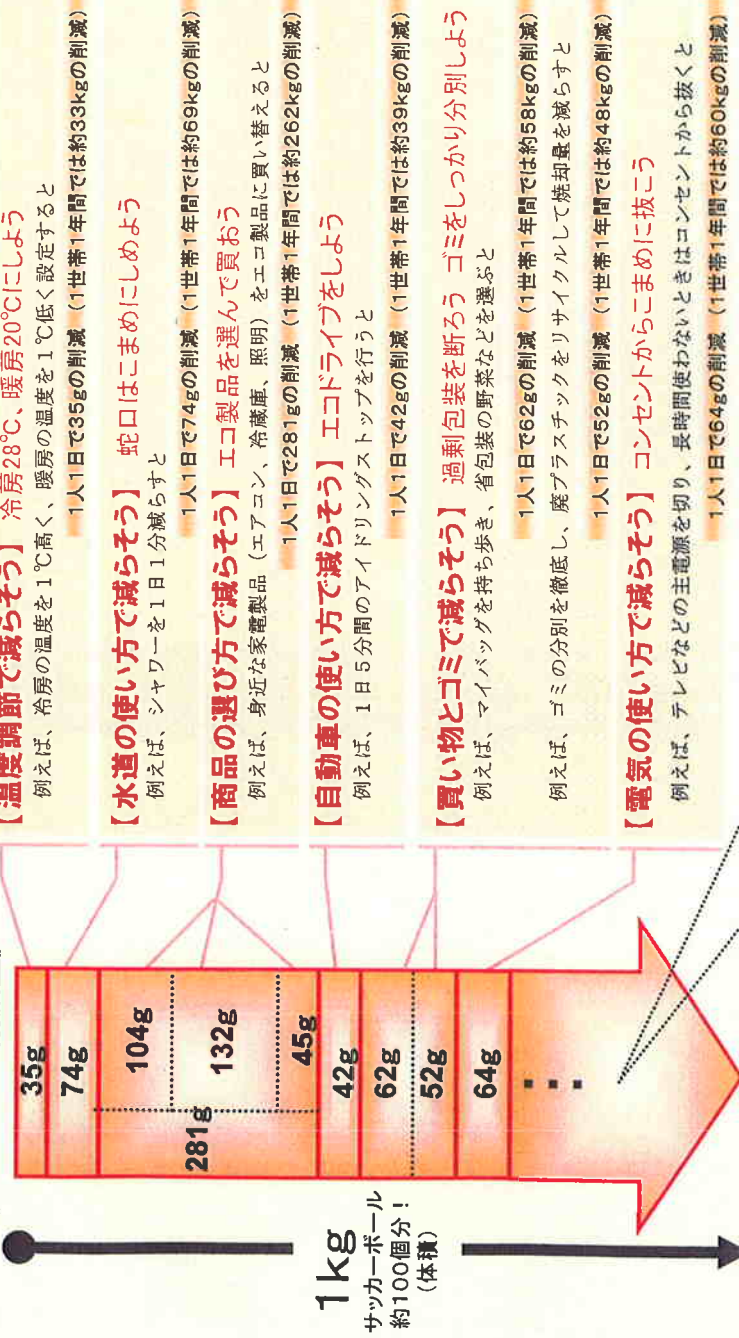 【温度調節で減らそう】 冷房28℃、暖房20℃にしよう
例えば、冷房の温度を1℃高く、暖房の温度を1℃低く設定すると
1人1日で35gの削減（1世帯1年間では約33kgの削減）
【水道の使い方で減らそう】 蛇口はこまめにしめよう
例えば、シャワーを1日1分減らすと
1人1日で74gの削減（1世帯1年間では約69kgの削減）
【商品の選び方で減らそう】 エコ製品を選んで買おう
例えば、身近な家電製品（エアコン、冷蔵庫、照明）をエコ製品に買い替えると
1人1日で281gの削減（1世帯1年間では約262kgの削減）
【自動車の使い方で減らそう】 エコドライブをしよう
例えば、1日5分間のアイドリングストップを行うと
1人1日で42gの削減（1世帯1年間では約39kgの削減）
【買い物とゴミで減らそう】 過剰包装を断ろう ゴミをしっかり分別しよう
例えば、マイバッグを持ち歩き、省包装の野菜などを選ぶと
1人1日で62gの削減（1世帯1年間では約58kgの削減）
例えば、ゴミの分別を徹底し、廃プラスチックをリサイクルして焼却量を減らすと
1人1日で52gの削減（1世帯1年間では約48kgの削減）
【電気の使い方で減らそう】 コンセントからこまめに抜こう
例えば、テレビなどの主電源を切り、長時間使わないときはコンセントから抜くと
1人1日で64gの削減（1世帯1年間では約60kgの削減）
35g
74g
281g
104g
132g
45g
42g
62g
52g
64g
1kg
サッカーボール
約100個分！
（体積）